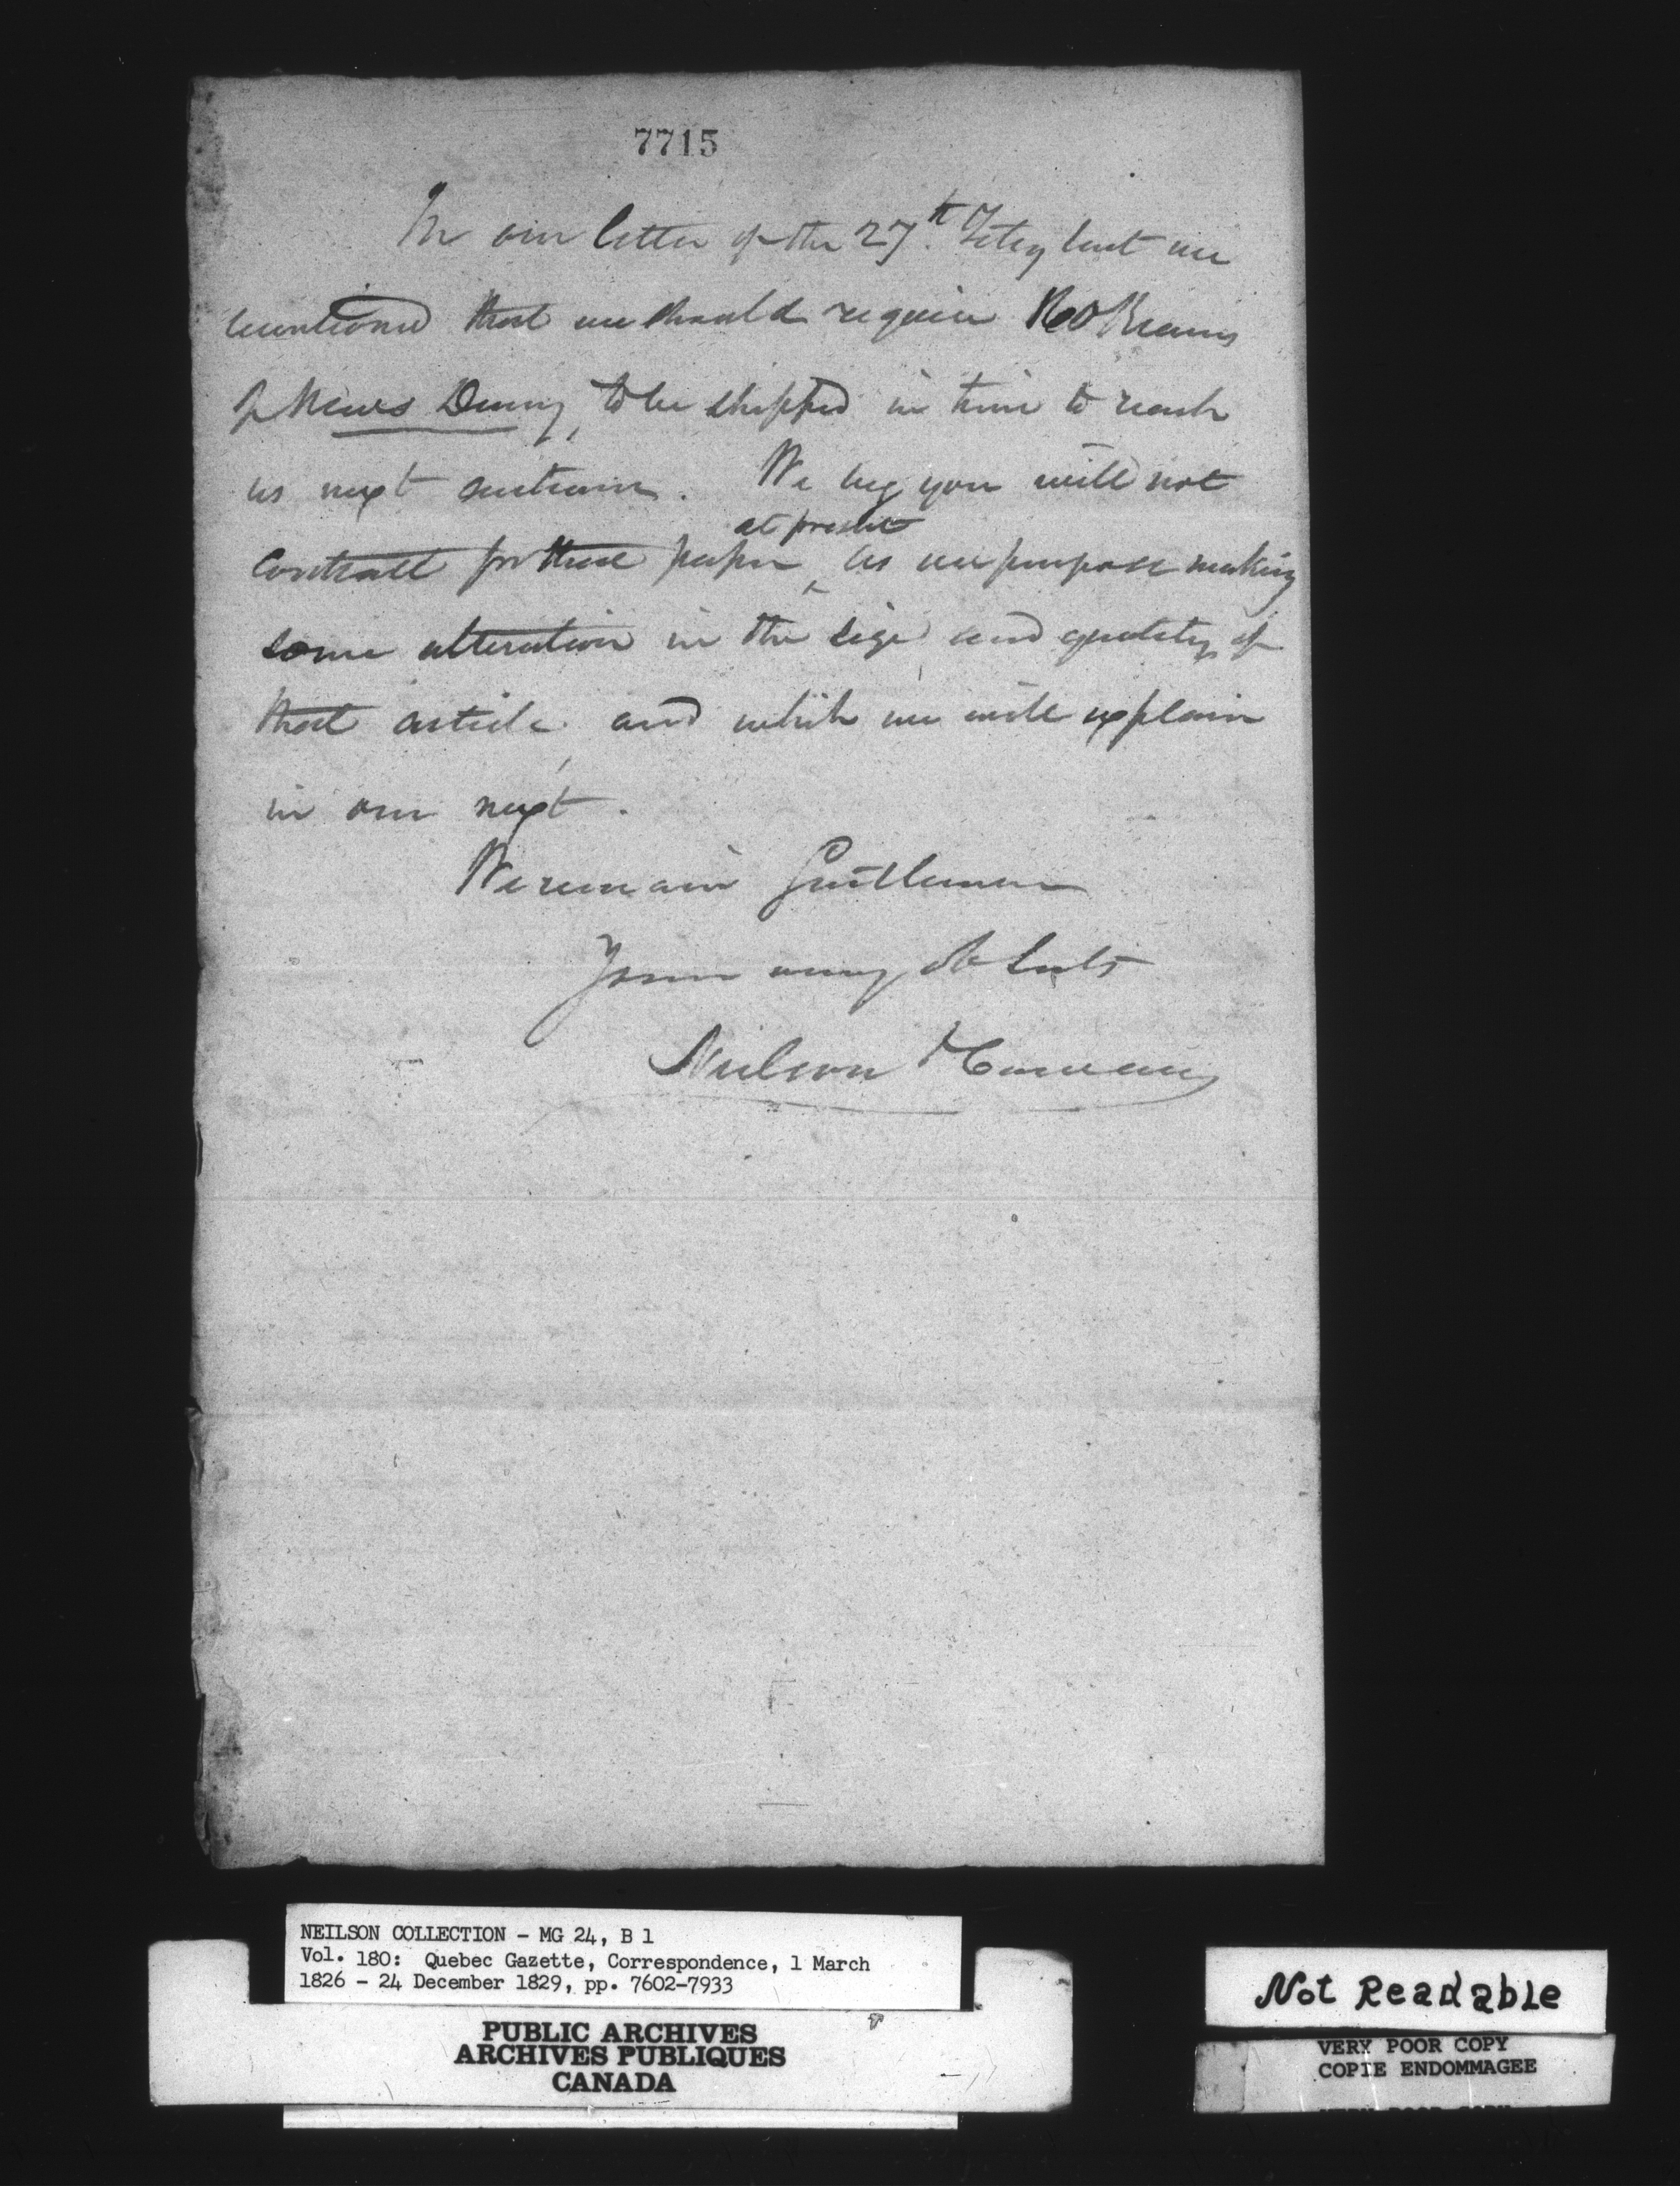 7715
In our letter of the 27th. Feby last we
mentioned that we should require Reams
of News Demy, to be shipped in time to reach
us next autumn. We beg you will not
at present
contract for these paper ^ as we purpose making
some alteration in the size and quality of
that article, and which we will explain
in our next.
We remain Gentlemen
Your Ob Servts
Neilson & Cowan
NEILSON COLLECTION - MG 24, B 1
Vol. 180: Quebec Gazette, Correspondence, 1 March
1826 - 24 December 1829, pp. 7602-7933
PUBLIC ARCHIVES
ARCHIVES PUBLIQUES
CANADA
Not Readable
VERY POOR COPY
COPIE ENDOMMAGEE